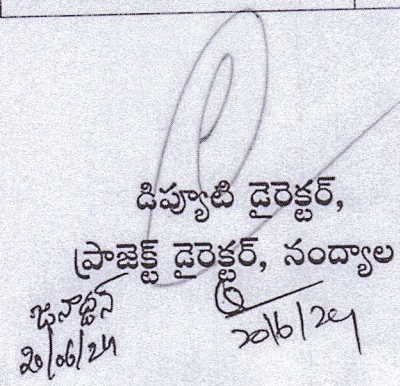 డిప్యూటి డైరెక్టర్,
ప్రాజెక్ట్ డైరెక్టర్, నంద్యాల
జనార్దన్
20/06/24 20/6/24